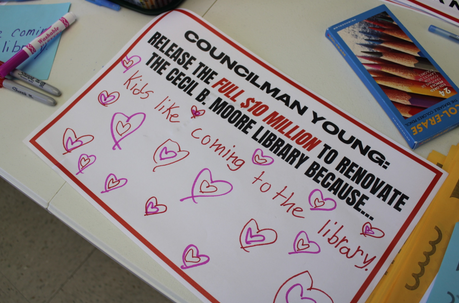 COUNCILMAN YOUNG:
RELEASE THE FULL $10 MILLION TO RENOVATE
THE CECIL B. MOORE LIBRARY BECAUSE...
Kids like coming to the library.
COL-ERASE
24